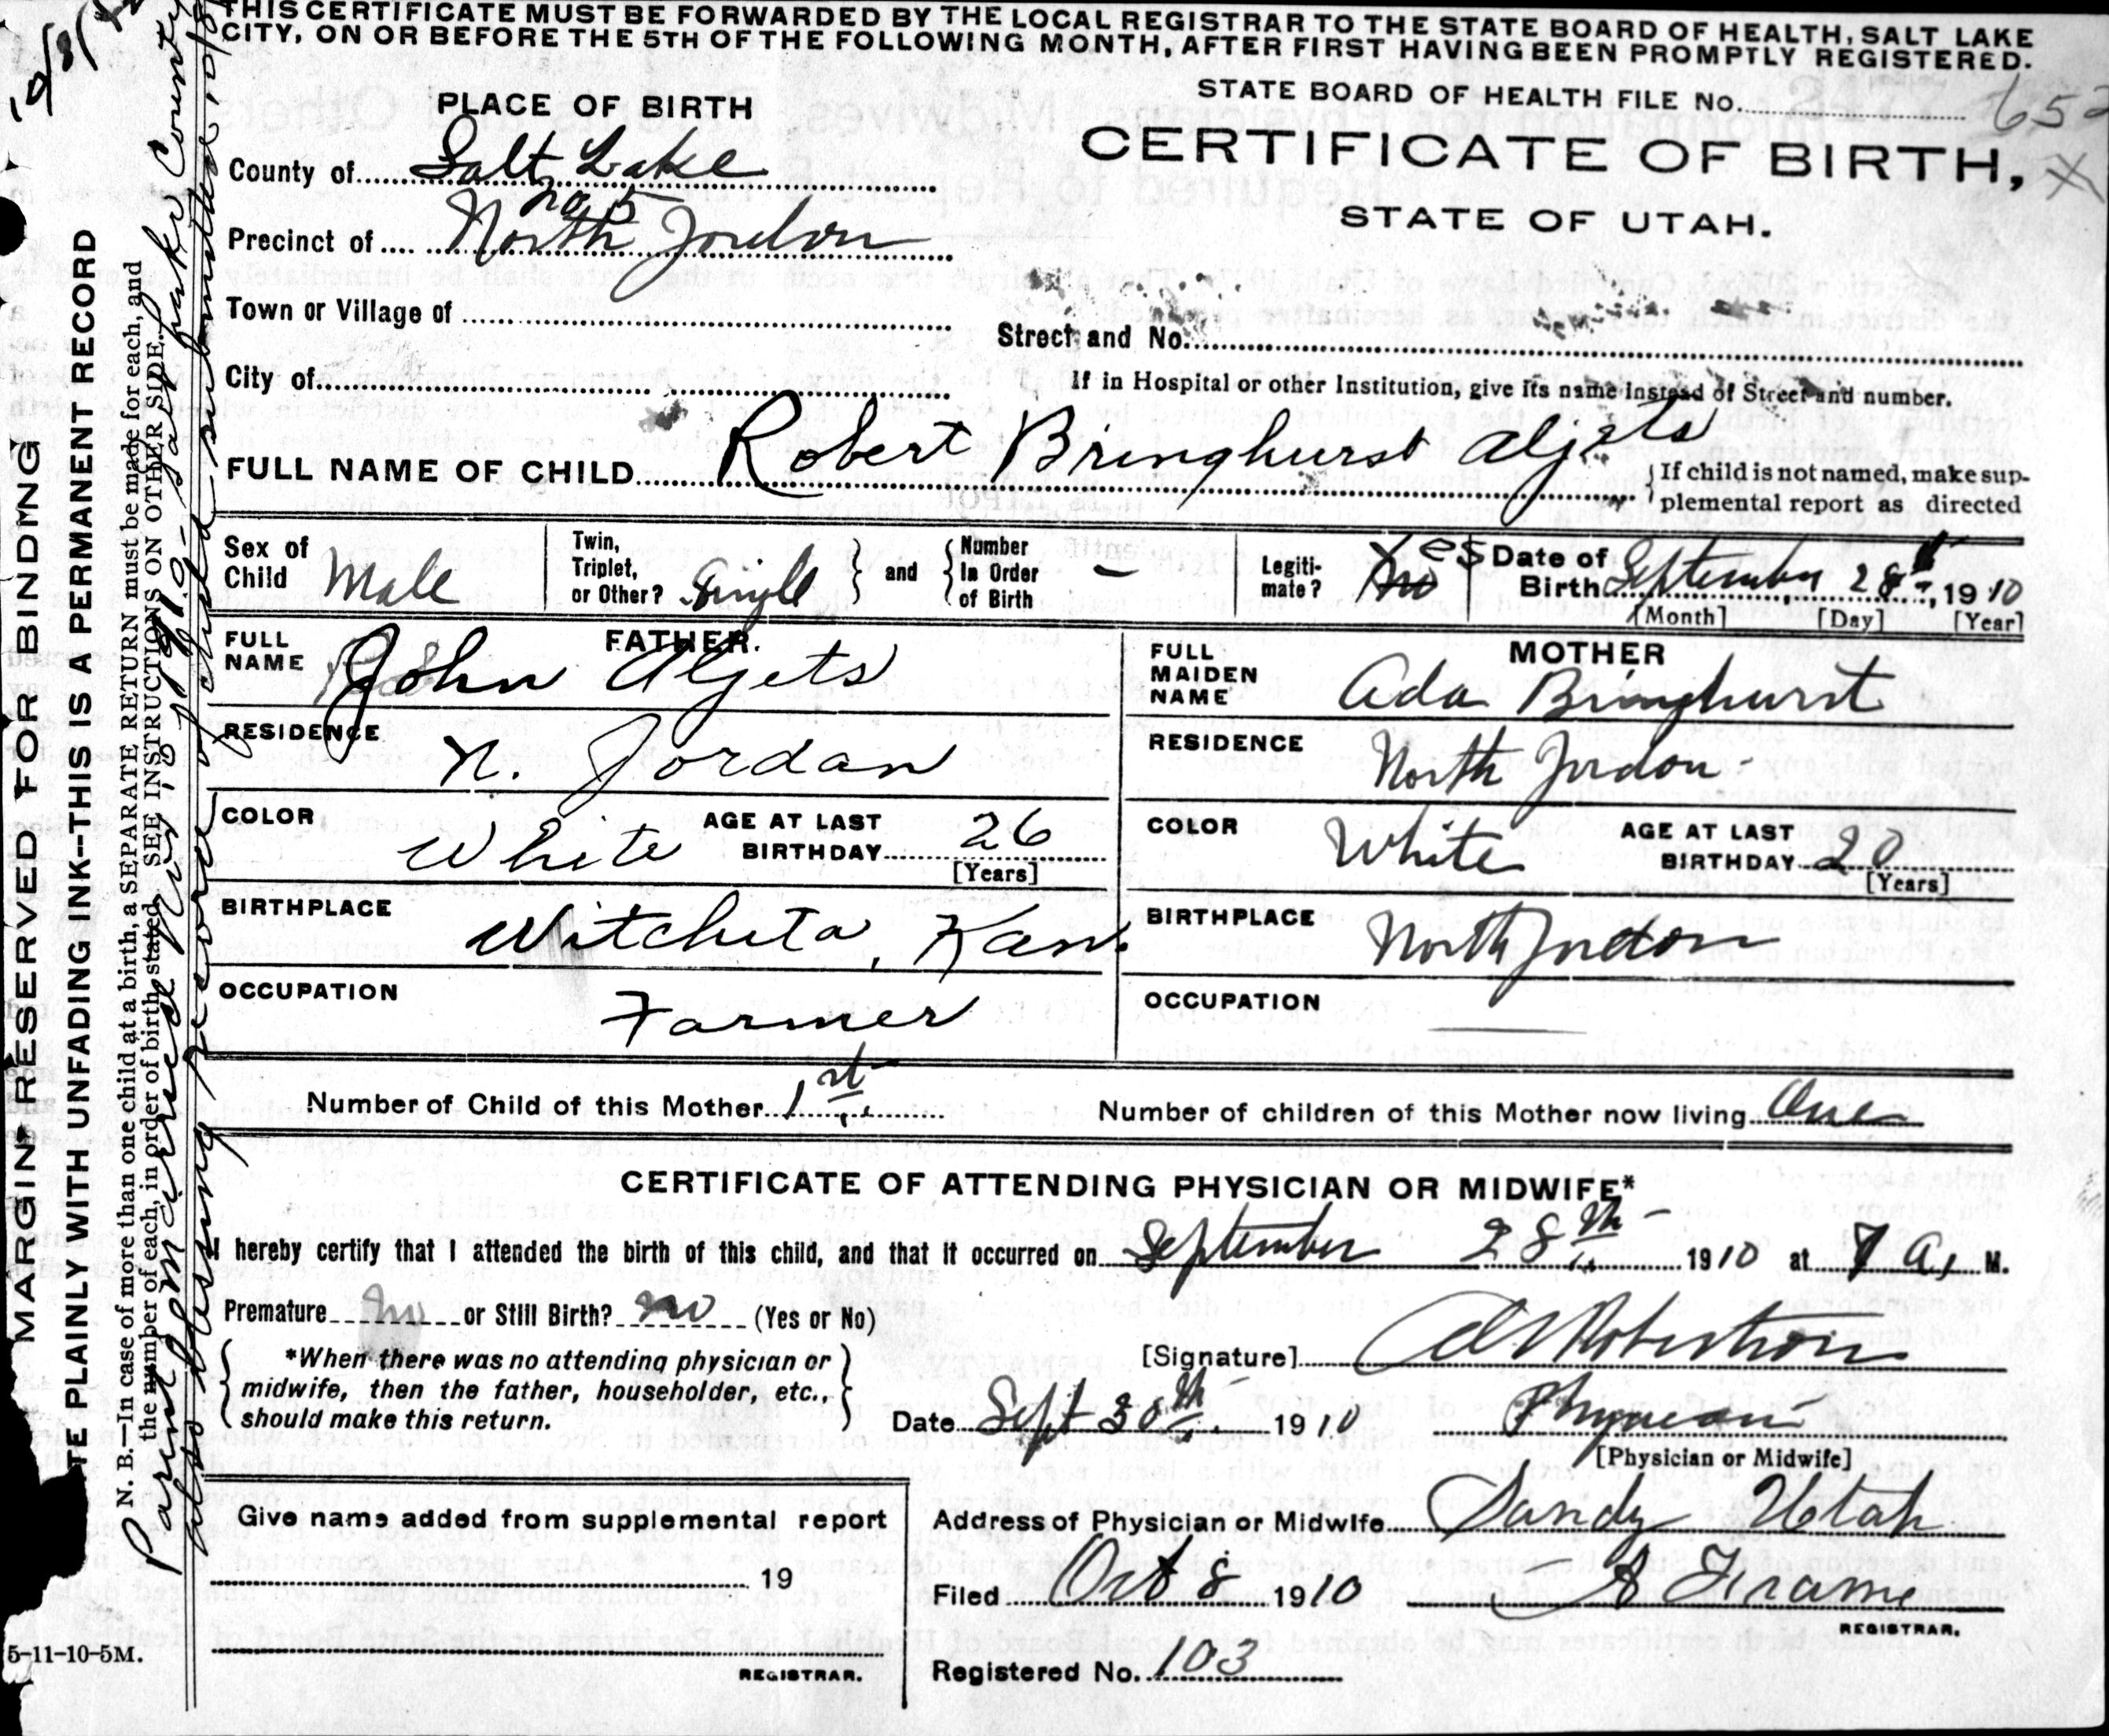 THIS CERTIFICATE MUST BE FORWARDED BY THE LOCAL REGISTRAR TO THE STATE BOARD OF HEALTH, SALT LAKE
CITY, ON OR BEFORE THE 5TH OF THE FOLLOWING MONTH, AFTER FIRST HAVING BEEN PROMPTLY REGISTERED.
STATE BOARD OF HEALTH FILE No.
PLACE OF BIRTH
CERTIFICATE OF BIRTH,
STATE OF UTAH.
County of Salt Lake
no 5
Precinct of North Jordon
Town or Village of
Street and No.
City of
If in Hospital or other Institution, give its name instead of Street and number.
FULL NAME OF CHILD Robert Bringhurst Aljets
If child is not named, make sup-
plemental report as directed
Sex of Child Male
Twin, Triplet, or Other? Single and Number In Order of Birth –
Legiti-mate? no Yes
Date of Birth September 28th, 1910
[Month] [Day] [Year]
FATHER.
FULL NAME John Aljets
RESIDENCE N. Jordan
COLOR White AGE AT LAST BIRTHDAY 26
[Years]
BIRTHPLACE Witchita, Kan.
OCCUPATION Farmer
MOTHER
FULL MAIDEN NAME Ada Bringhurst
RESIDENCE North Jordon
COLOR White AGE AT LAST BIRTHDAY 20
[Years]
BIRTHPLACE North Jordon
OCCUPATION
Number of Child of this Mother 1st
Number of children of this Mother now living One
CERTIFICATE OF ATTENDING PHYSICIAN OR MIDWIFE*
I hereby certify that I attended the birth of this child, and that it occurred on September 28th 1910 at 7 a, M.
Premature no or Still Birth? no (Yes or No)
*When there was no attending physician or
midwife, then the father, householder, etc.,
should make this return.
[Signature] Robertson
Date Sept 30th 1910 Physician
[Physician or Midwife]
Give name added from supplemental report
19
REGISTRAR.
Address of Physician or Midwife Sandy Utah
Filed Oct 8 1910 A Frame
REGISTRAR.
Registered No. 103
5-11-10-5M.
MARGIN RESERVED FOR BINDING
TE PLAINLY WITH UNFADING INK--THIS IS A PERMANENT RECORD
N. B.—In case of more than one child at a birth, a SEPARATE RETURN must be made for each, and
the number of each, in order of birth, stated. SEE INSTRUCTIONS ON OTHER SIDE.